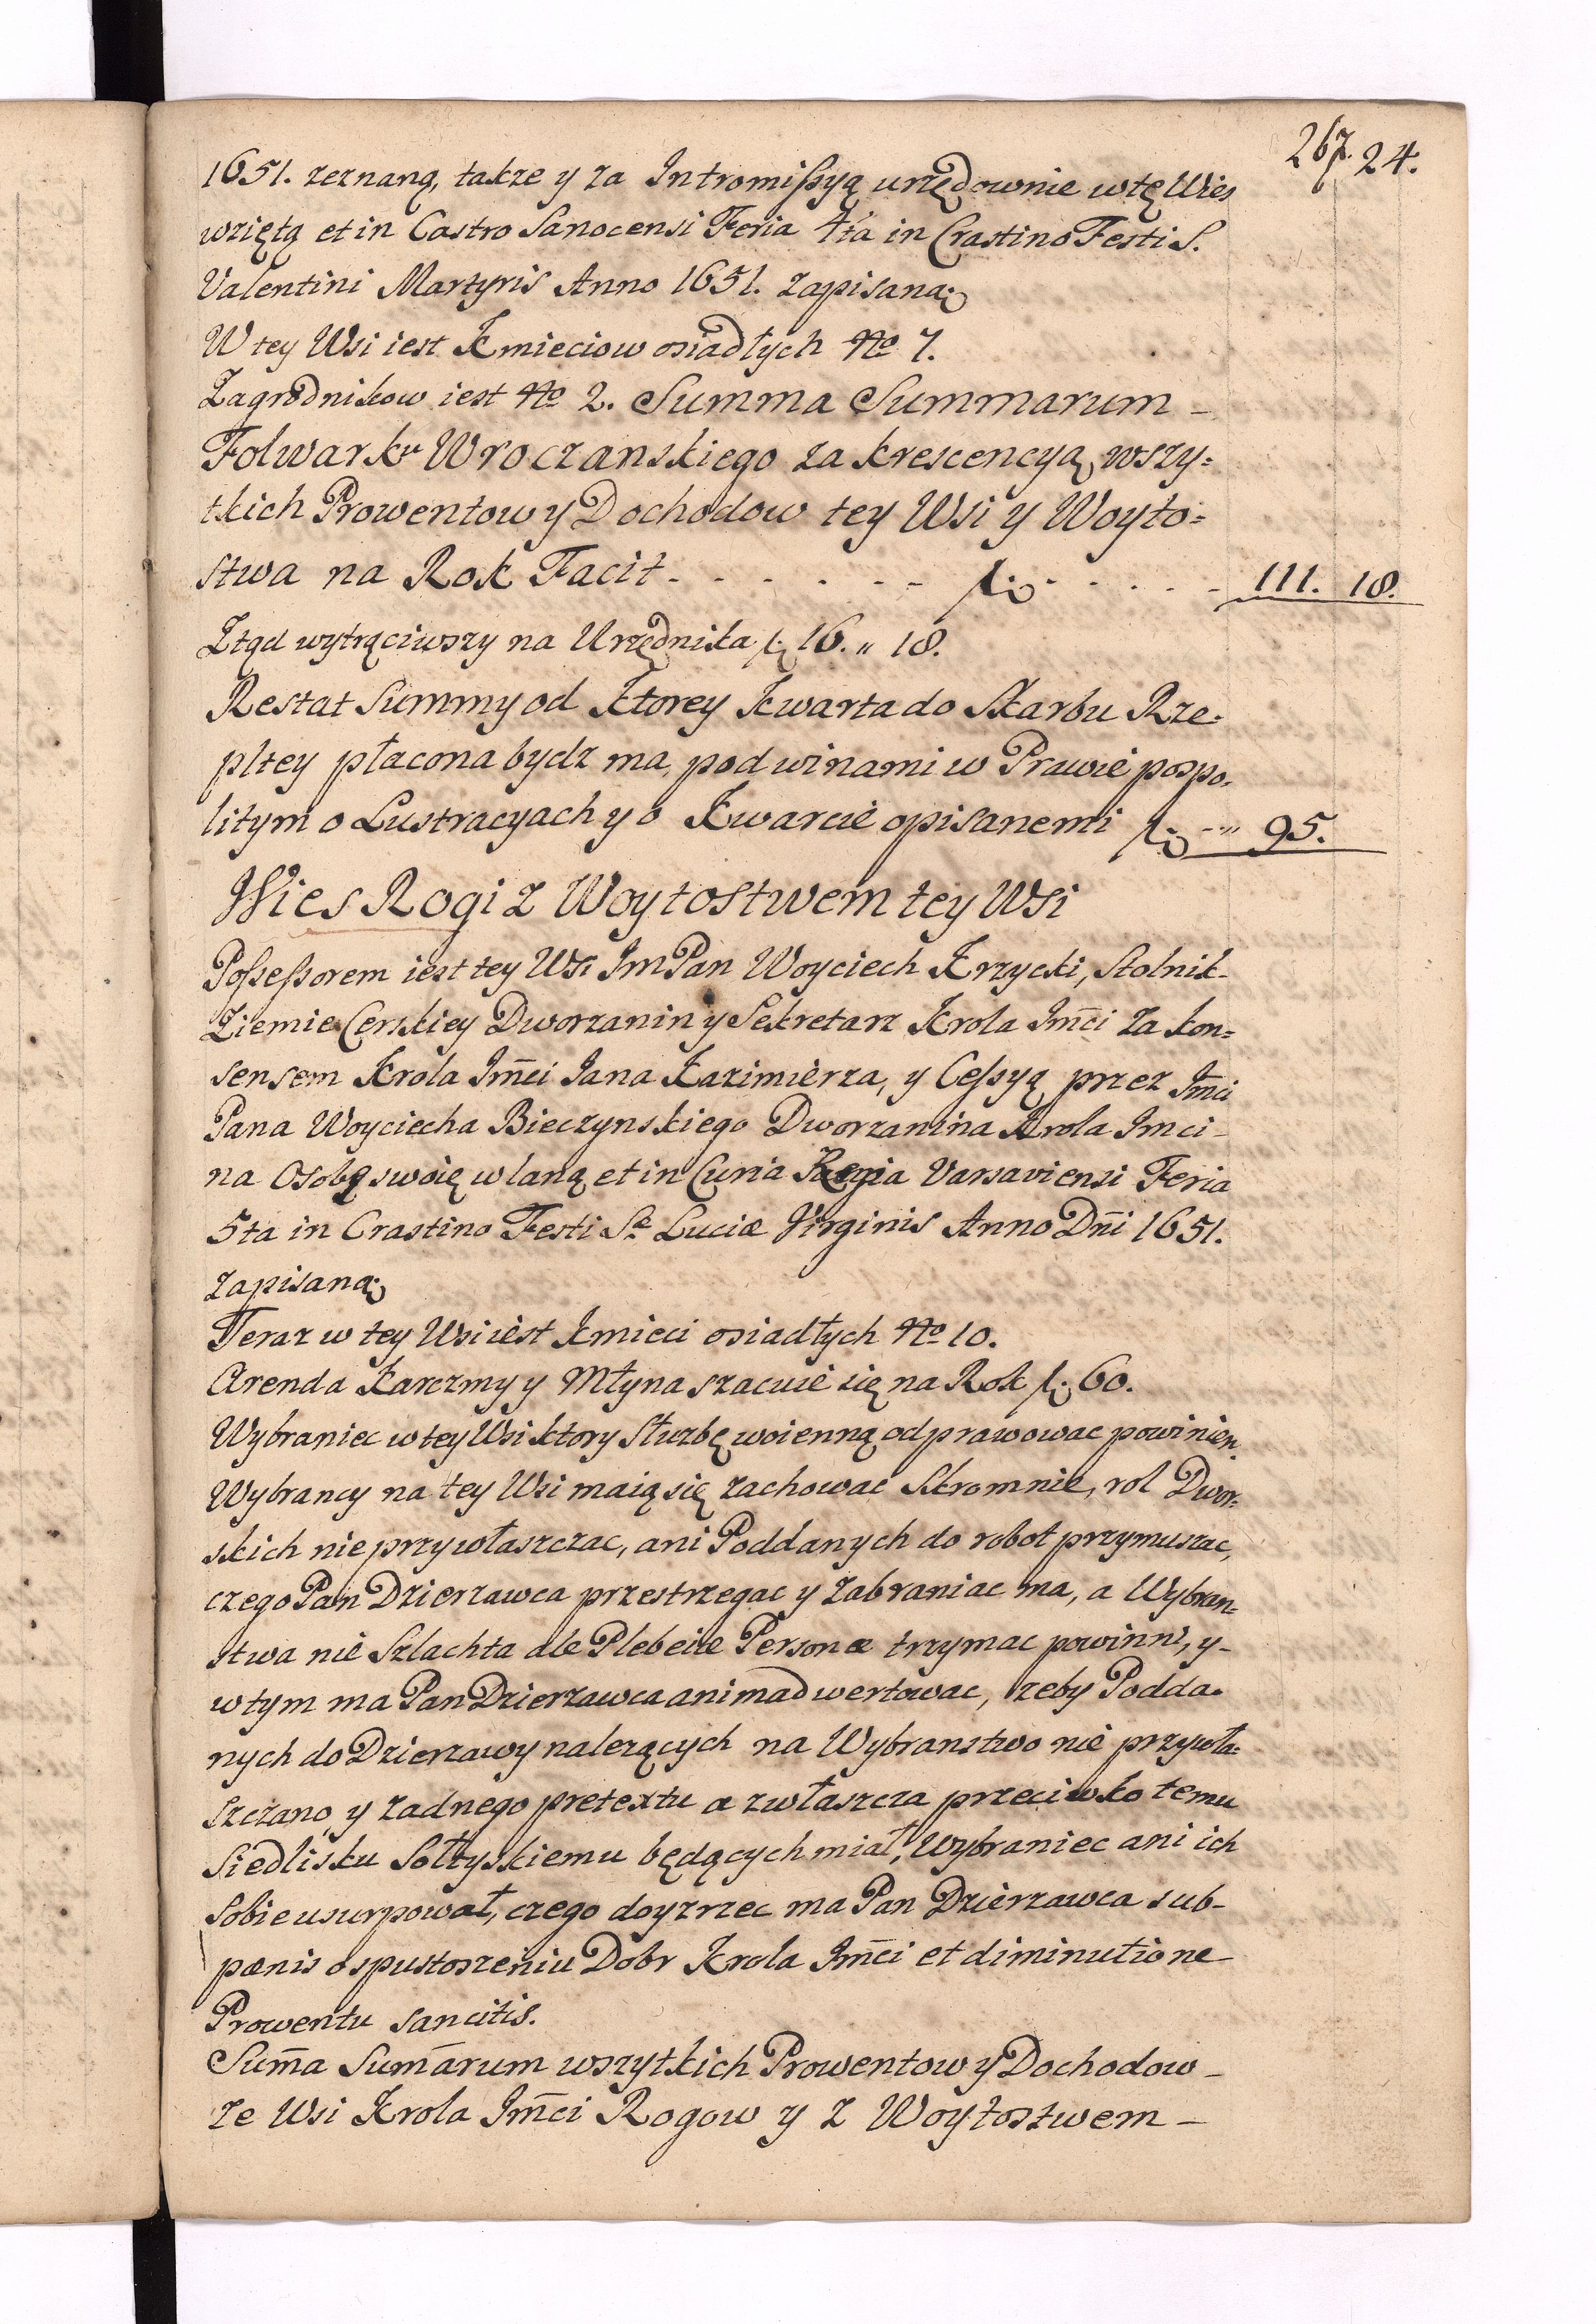 267. 24.
1651. zeznaną, takze y za Intromissyą urzędownie w tę Wies
wziętą et in Castro Sanocensi Feria 4ta in Crastino Festi S.
Valentini Martyris Anno 1651. zapisaną
W tey Wsi iest Kmieciow osiadłych No 7.
Zagrodnikow iest No 2. Summa Summarum -
Folwarku Wroczanskiego za krescencyą wszy=
tkich Prowentow y Dochodow tey Wsi y Woyto=
stwa na Rok Facit - - - - - - - - - - - 111. 18.
Ztąd wytrąciwszy na Urzędnika 16. " 18.
Restat Summy od Ktorey Kwarta do Skarbu Rze=
pltey płacona bydz ma, pod winami w Prawie pospo=
litym o Lustracyach y o Kwarcie opisanemi 95.
Wies Rogi z Woytostwem tey Wsi
Possessorem iest tey Wsi Jm Pan Woyciech Krzycki, Stolnik-
Ziemie Cerskiey Dworzanin y Sekretarz Krola Jm̄ci za kon=
sensem Krola Jm̄ci Jana Kazimierza, y Cessyą przez Jm̄ci
Pana Woyciecha Bieczynskiego Dworzanina Krola Jmci -
na Osobę swoię wlaną et in Curia Regia Varsaviensi Feria
5ta in Crastino Festi Se Luciæ Virginis Anno Dn̄i 1651.
zapisaną
Teraz w tey Wsi iest Kmieci osiadłych No 10.
Arenda Karczmy y Młyna szacuie się na Rok 60.
Wybraniec w tey Wsi ktory Służbę woienną odprawowac powinien
Wybrancy na tey Wsi maią się zachowac Skromnie, rol Dwor=
skich nie przywłaszczac, ani Poddanych do robot przymuszac,
czego Pan Dzierzawca przestrzegac y zabraniac ma, a Wybran=
stwa nie Szlachta ale Plebeiæ Personæ trzymac powinni, y -
w tym ma Pan Dzierzawca animadwertowac, zeby Podda=
nych do Dzierzawy nalezących na Wybranstwo nie przywła=
szczano, y zadnego pretextu a zwłaszcza przeciwko temu
Siedlisku Sołtyskiemu będących miał, Wybraniec ani ich
Sobie usurpował, czego doyzrzec ma Pan Dzierzawca sub-
pœnis o spustoszeniu Dobr Krola Jm̄ci et diminutione
Prowentu sancitis.
Sum̄a Sumārum wszytkich Prowentow y Dochodow -
ze Wsi Krola Jm̄ci Rogow y z Woytostwem -